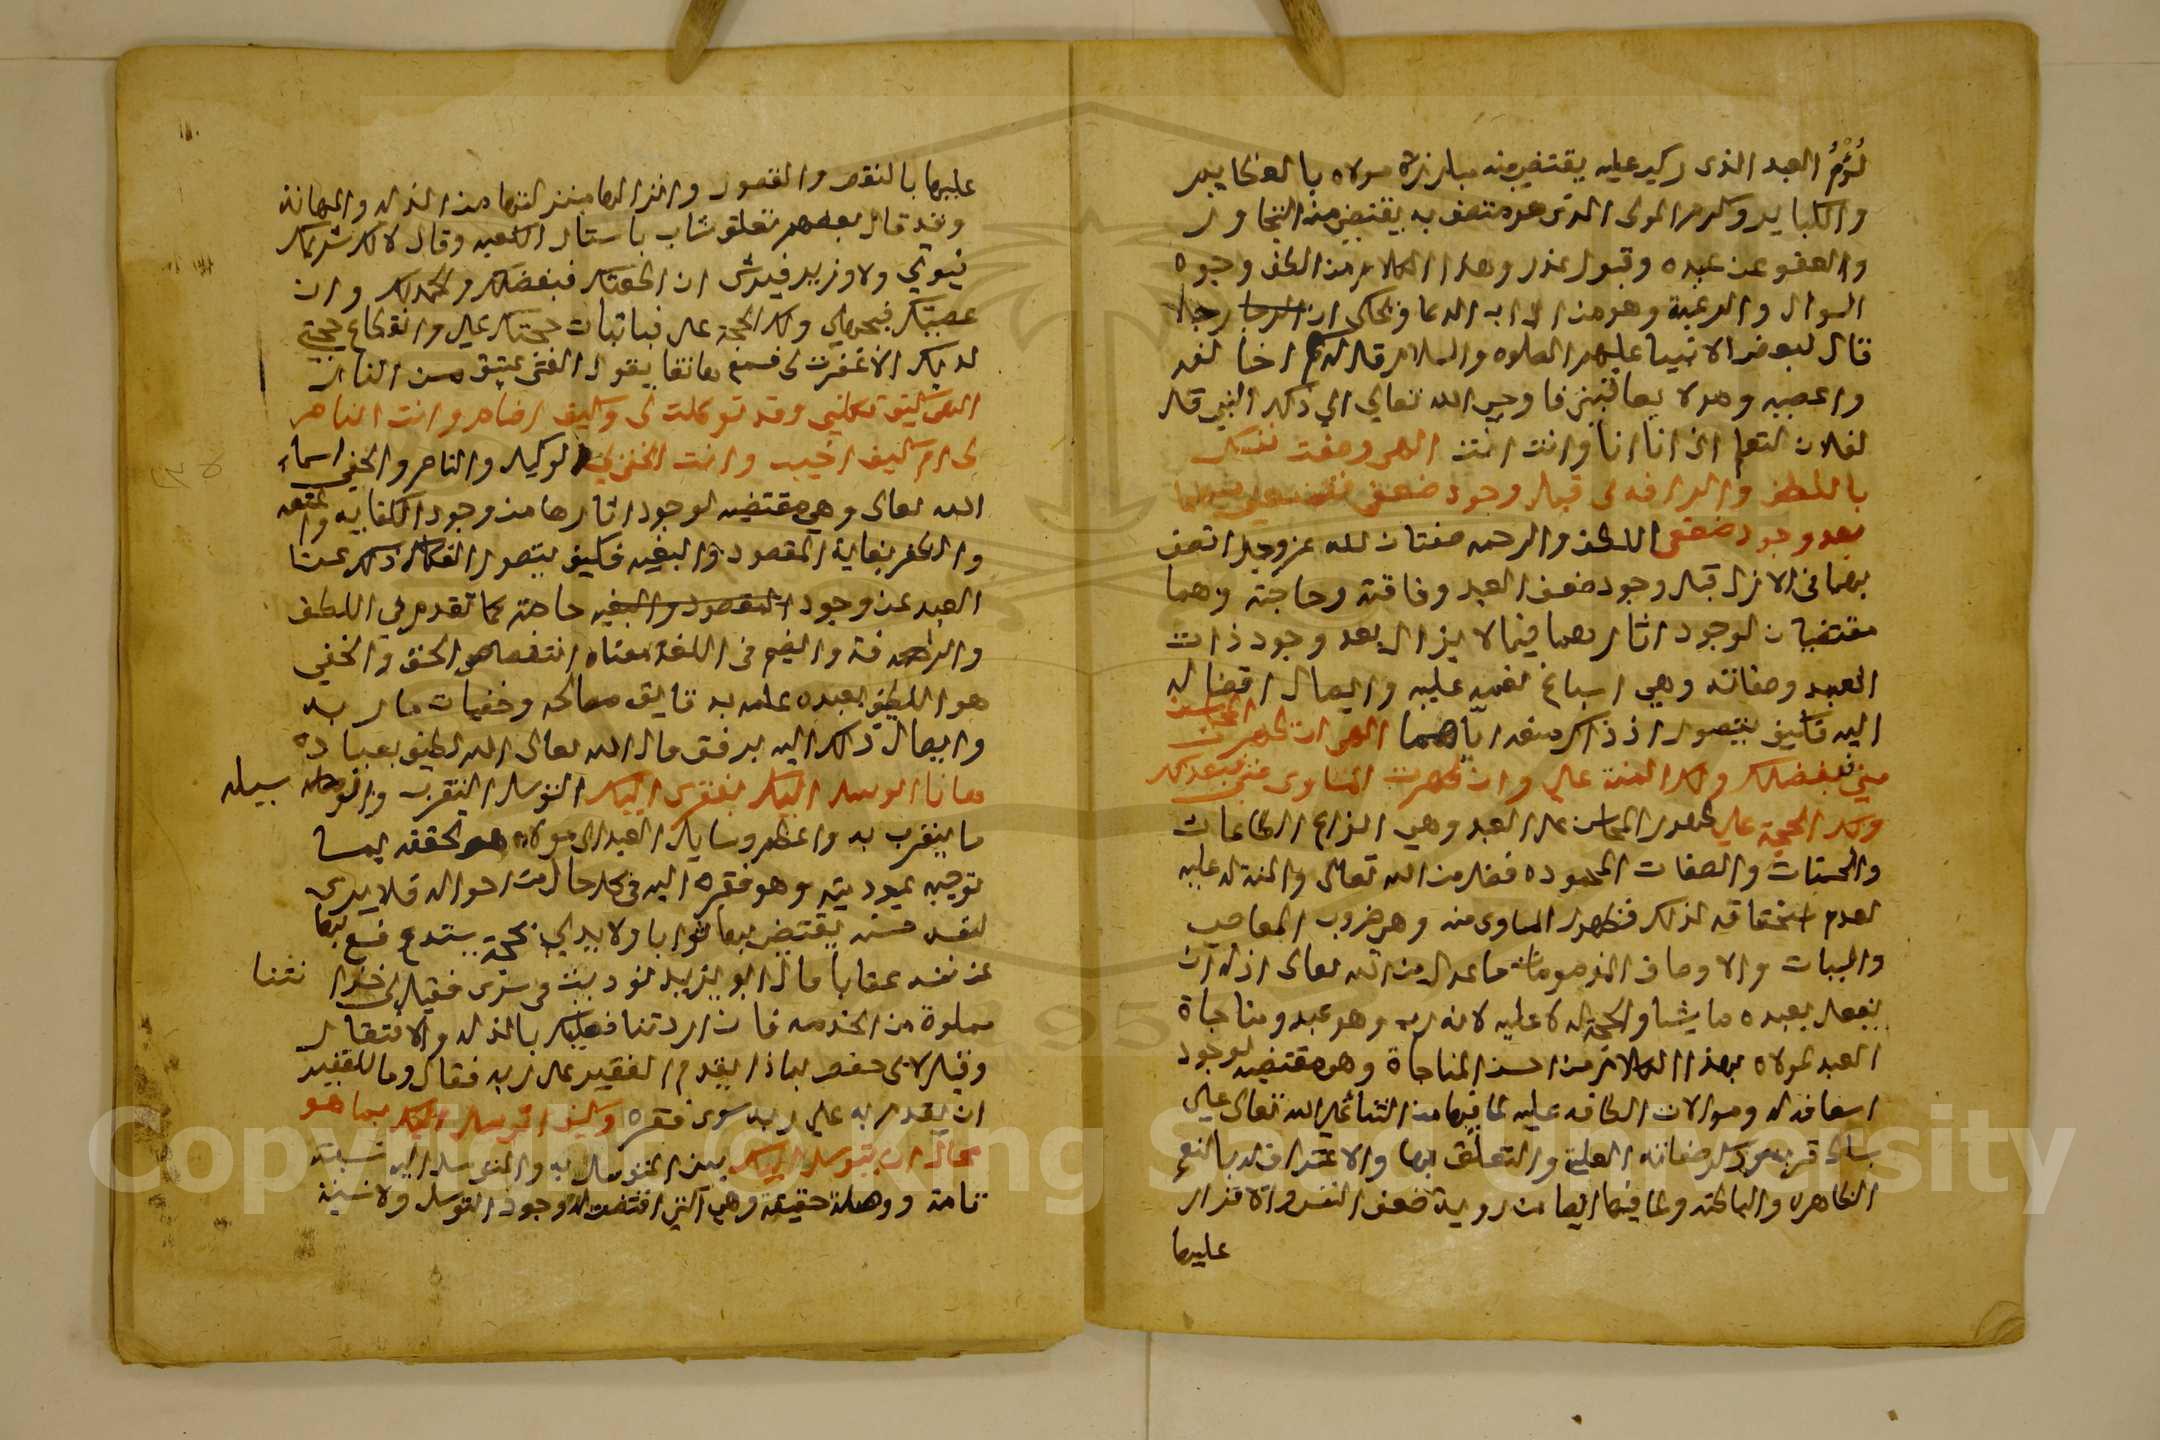 لؤم العبد الذى ركب عليه يقتضي منه مبارزة مولاه بالعظايم
والكباير وكرم المولى الذى هو متصف به يقتضى منه التجاوز
والعفو عن عبده وقبول عذره وهذا الكلام من الطف وجوه
السوال والرغبة وهو من اداب الدعا ويحكى ان رجلا
قال لبعض الانبيا عليهم الصلوه والسلام قال له كم اخالفه
واعصيه وهو لا يعاقبني فاوحى الله تعالى الى ذلك النبي قل
لفلان لتعلم انى انا انا وانت انت الهى وصفت نفسك
باللطف والرافه لى قبل وجود ضعفى افتمنعني منهما
بعد وجود ضعفى اللطف والرحمه صفتان لله عز وجل اتصف
بهما فى الازل قبل وجود ضعف العبد وفاقته وحاجته وهما
مقتضيان لوجود اثارهما فيما لا يزال بعد وجود ذات
العبد وصفاته وهي اسباغ نعمه عليه وايصال افضاله
اليه فكيف يتصور اذ ذاك منعه اياهما الهى ان ظهرت المحاسن
مني فبفضلك ولك المنة علي وان ظهرت المساوى مني فبعدلك
ولك الحجة علي ظهور المحاسن على العبد وهي انواع الطاعات
والحسنات والصفات المحموده فضل من الله تعالى والمنة له عليه
لعدم استحقاقه لذلك فظهور المساوى منه وهي ضروب المعاصي
والسيات والاوصاف المذمومات عدل من الله تعالى اذ له ان
يفعل بعبده ما يشا والحجة له لا عليه لانه ربه وهو عبد ومناجاة
العبد لمولاه بهذا الكلام من احسن المناجاة وهو مقتضي لوجود
اسعافه له وموالات الطافه عليه لما فيها من الثنا على الله تعالى علي
بساط قربه وكل صفاته العلية والتعلق بها والاعتراف له بالنعم
الظاهره والباطنه ولما فيها ايضا من روية ضعف النفس والاقرار
عليها
عليها بالنقص والقصور وانزالها منزلتها من الذل والمهانة
وقد قال بعضهم تعلق شاب باستار الكعبه وقال لا لك شريك
فيوتي ولا وزير فيرشى ان اطعتك فبفضلك ولك الحمد وان
عصيتك فبجهلي ولك الحجة على فباثبات حجتك علي وانقطاع حجتي
لديك الا غفرت لى فسمع هاتفا يقول الفتى عتيق من النار
الهى كيف تكلني وقد توكلت لى وكيف اضام وانت الناصر
لى ام كيف اخيب وانت الحفي بي الوكيل والناصر والحفي اسماء
الله تعالى وهي مقتضيه لوجود اثارها من وجود الكفايه والمنعه
والظفر بغاية المقصود والبغيه فكيف يتصور انفكاك ذلك عن
العبد عن وجود حاجته كما تقدم فى اللطف
والرافة والضيم فى اللغة معناه انتقاص الحق والحفي
هو اللطيف بعبده علمه بدقايق مصالحه وخفيات ماربه
وايصال ذلك اليه برفق قال الله تعالى الله لطيف بعباده
ها انا اتوسل اليك بفقرى اليك التوسل التقرب والوسيله
ما يتقرب به واعظم وسايل العبد الى مولاه هو تحققه بما
توجبه عبوديته وهو فقره اليه فى كل حال من احواله فلا يرى
لنفسه حسنه يقتضى بها ثوابا ولا يدلي بحجة يستدعى فسع بها
عن نفسه عقابا قال ابو يزيد نوديت فى سرى فقيل لى خزائننا
مملوة من الخدمه فان اردتنا فعليك بالذل والافتقار
وقيل لابى حفص بماذا يقدم الفقير على ربه فقال وما للفقير
ان يقدم به على ربه سوى فقره وكيف اتوسل اليك بما هو
محال ان يتوسل اليك بين المتوسل به والمتوسل اليه نسبة
تامة ووصلة حقيقة وهي التي اقتضت له وجود التوسل ولا نسبة